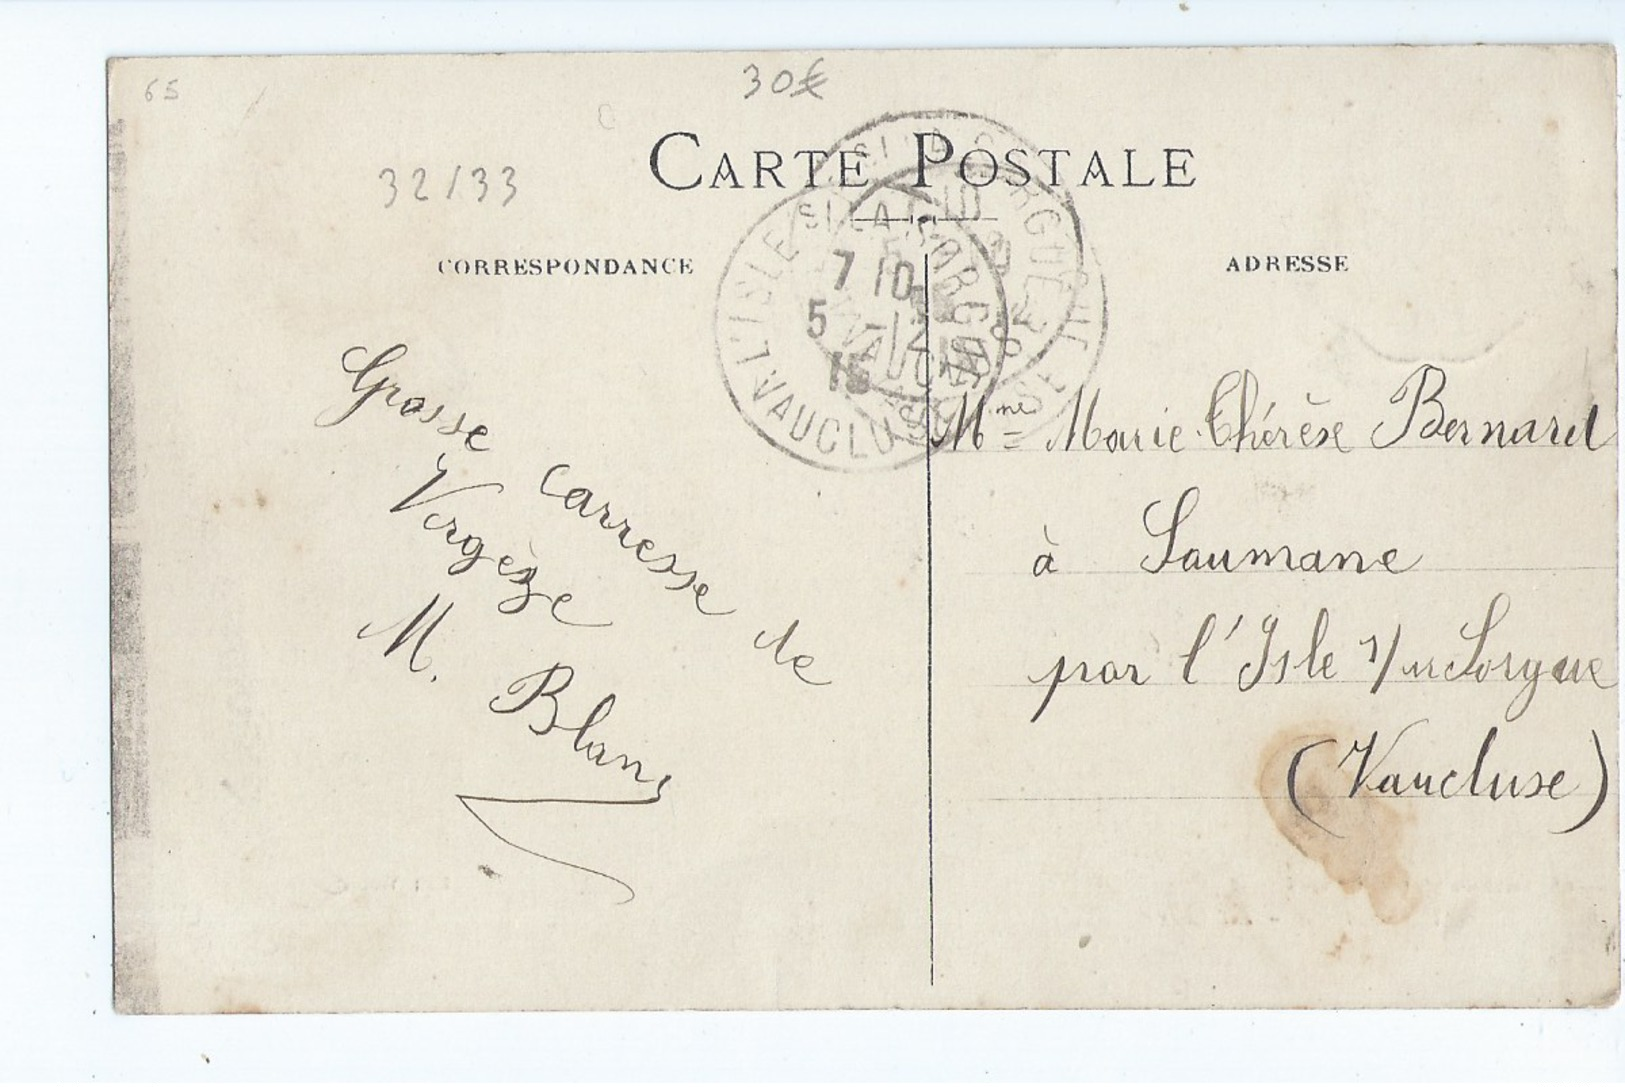 65
30€
32/33
CARTE POSTALE
CORRESPONDANCE
ADRESSE
L'ISLE S/ LA SORGUE
7 10
5 -12
15
VAUCLUSE
Grosse carresse de
Vergèze
M. Blanc
Mme Marie Thérèse Bernard
à Saumane
par l'Isle s/ur Sorgue
(Vaucluse)